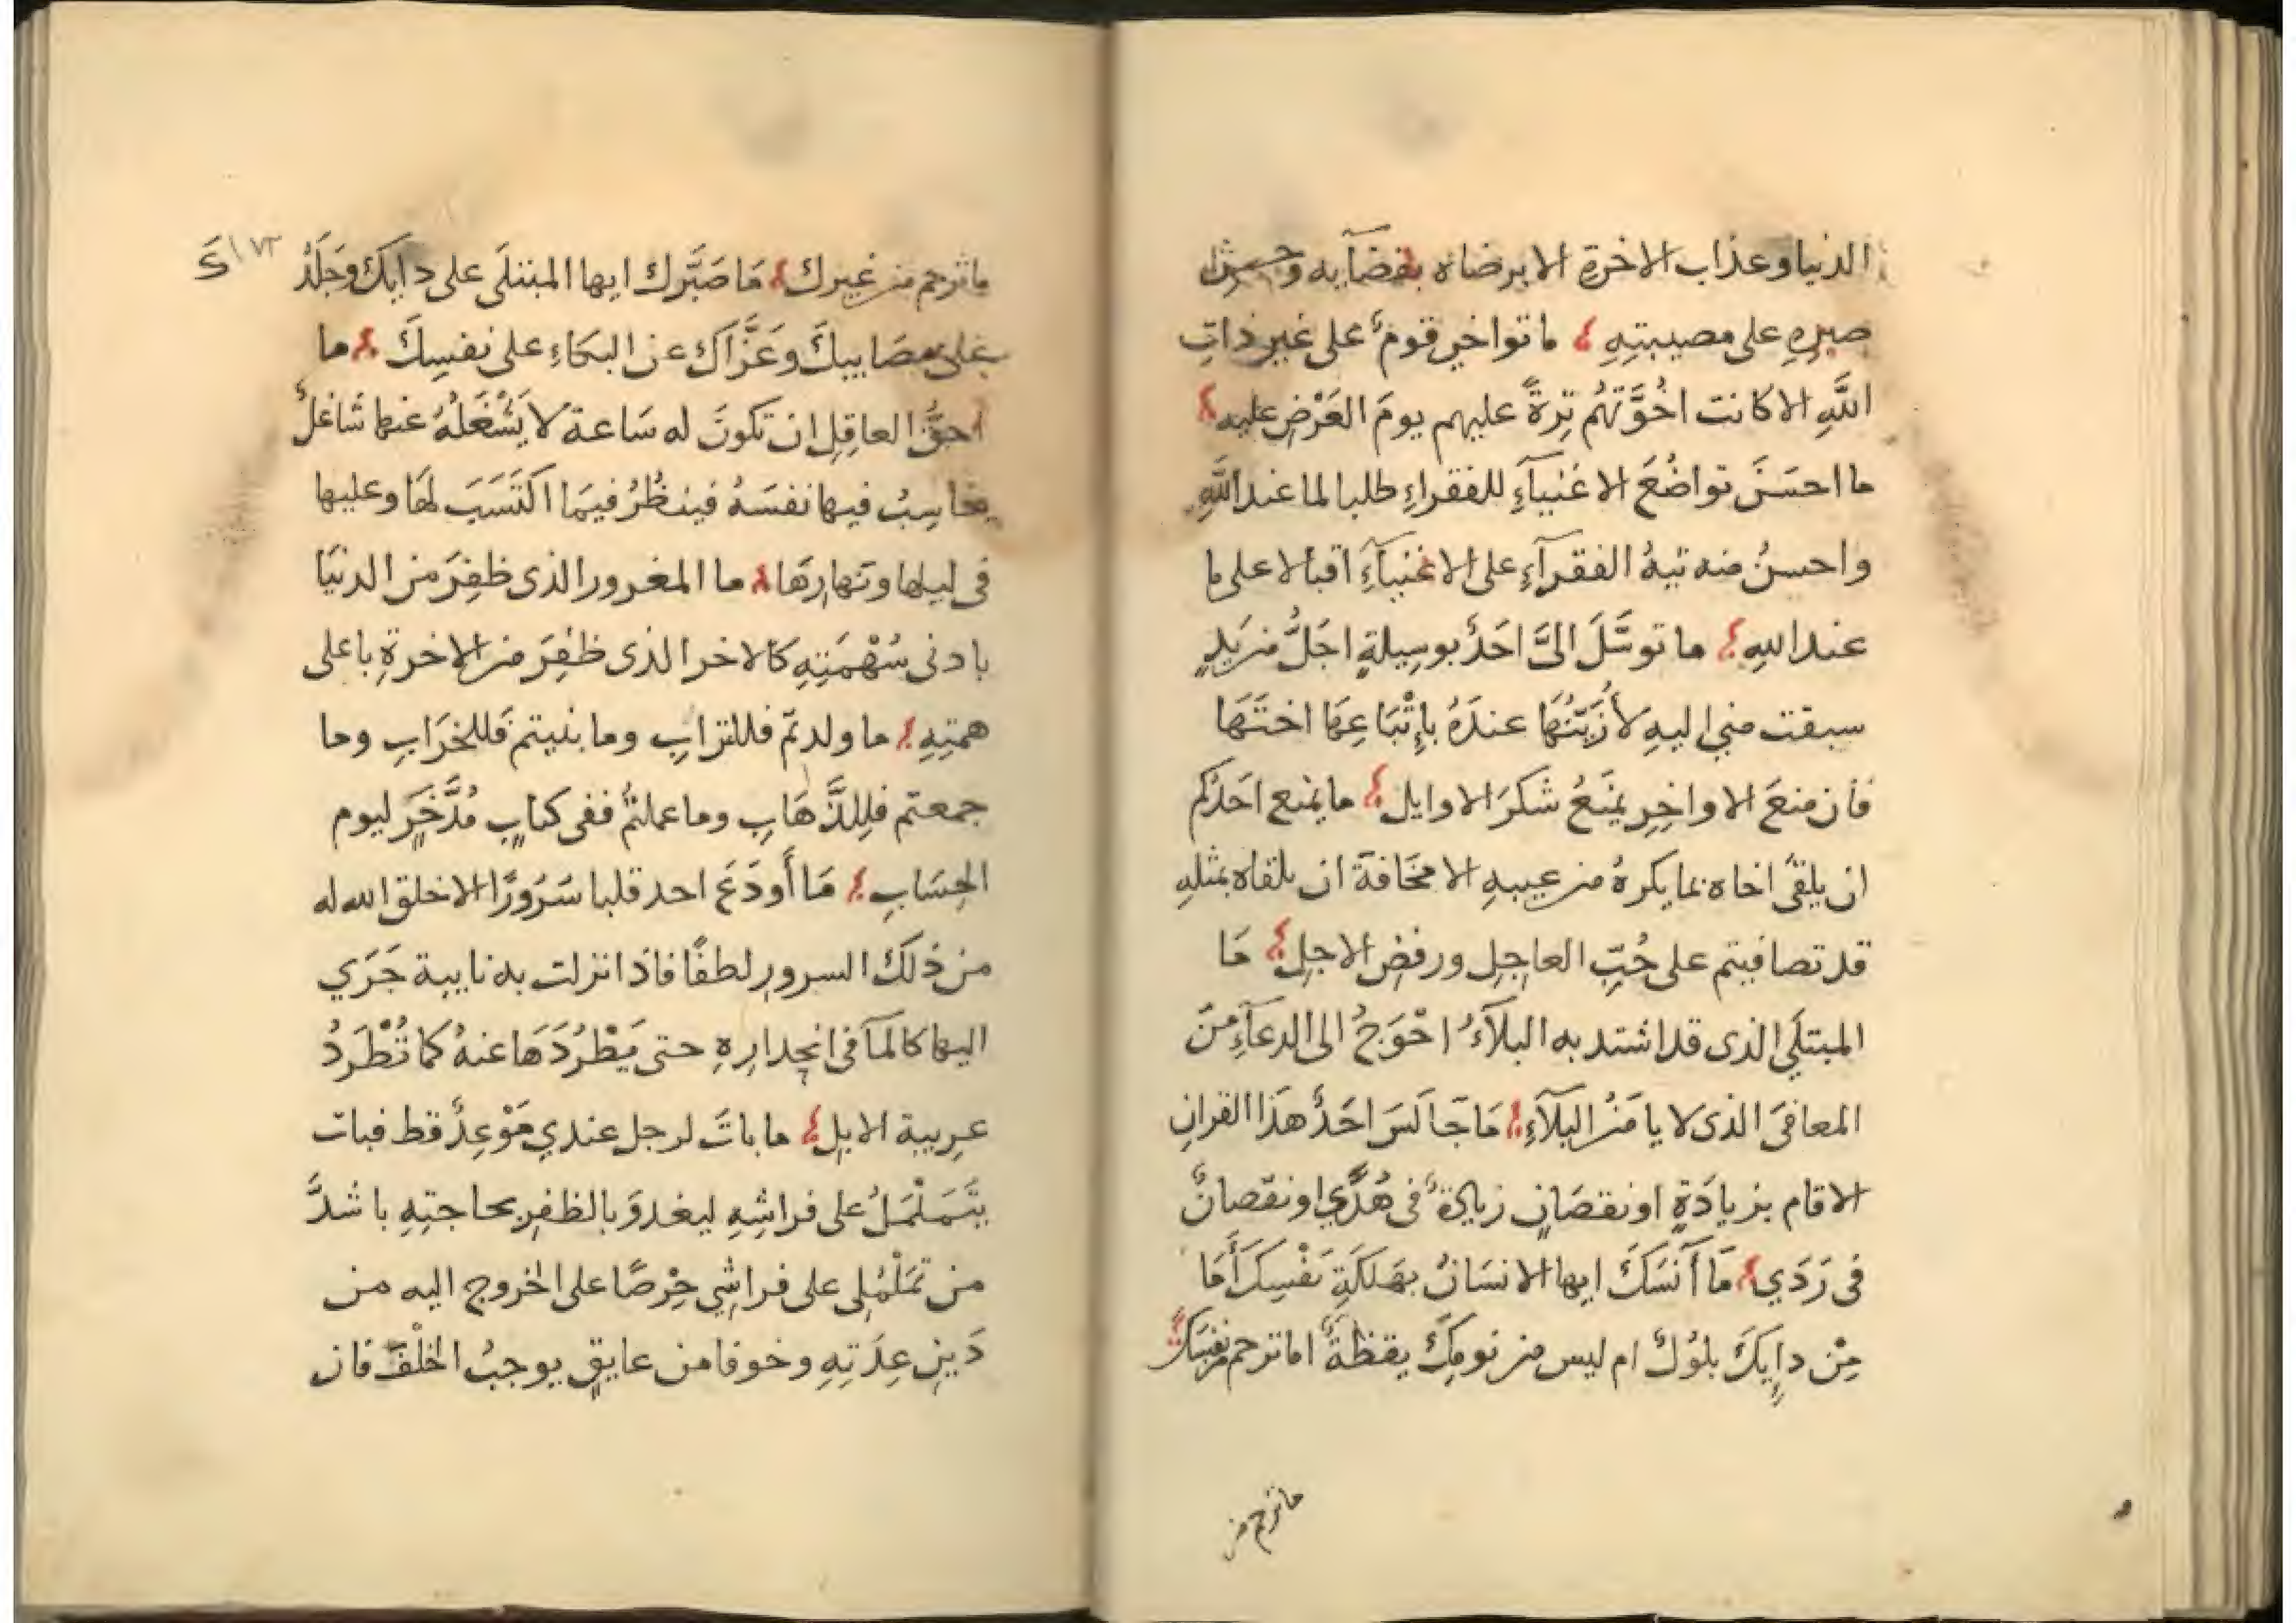 الدنيا وعذاب الاخرة الا برضاه بقضآيه وحسن
صبرِهِ على مصيبتِهِ ما تواخى قومٌ على غير ذاتِ
اللَّهِ الا كانت اخُوَّتهُم تِرةً عليهم يومَ العَرْضِ عليه
ما احسَنَ تواضُعَ الاغنيآءِ للفقراءِ طلبا لما عند اللَّهِ
واحسنُ منه تيهُ الفقرآءِ على الاغنيآءِ اقبالا على ما
عند اللهِ ما توسَّلَ الىَّ احَدٌ بوسِيلةٍ اجَلُّ من يَدٍ
سبقت مني اليهِ لأُرَبّيَهَا عندَهُ بإِتْبَاعِهَا اختَهَا
فان منعَ الاواخِرِ يمنَعُ شكرَ الاوايل ما يمنع احَدَكم
ان يلقىَ اخاه بما يكرهُ من عيبهِ الا مخَافةَ ان يلقاه بمثلِهِ
قد تصافيتم على حُبِّ العاجِلِ ورفضِ الاجلِ مَا
المبتلَى الذى قد اشتد به البلآءُ احْوَجُ الى الدعآءِ منَ
المعافىَ الذى لا يا مَنُ البلآءِ مَا جَالَسَ احَدٌ هذَا القرانِ
الا قام بزيادَةٍ او نقصَانٍ زيادةٌ فى هُدًي او نقصانٌ
فى رَدَي مَا آنَسَكَ ايها الانسَانُ بهَلكَةِ نَفْسِكَ أَمَا
مِنْ دايِكَ بلوُلٌ ام ليس من نومِكَ يقظةٌ اما ترحم من نفسِكَ
ما ترحم من
ما ترحم من غيرك مَا صَبَّرك ايها المبتلَى على دايِكَ وجَلَّدَ
١٧٣
كَ
على مصَايبِكَ وعَزَّاكَ عن البكَاءِ على نفسِكَ ما
احقَّ العاقِلِ ان تكونَ له سَاعة لا يَشْغَلُهُ عنها شَاغلٌ
يحَاسِبُ فيها نفسَهُ فينظُرُ فيمَا اكتَسَبَ لهَا وعليها
فى ليلها ونهارِهَا ما المغرور الذى ظفِرَ من الدنيَا
بادنى سُهْمَتِهِ كالاخر الذى ظفِرَ من الاخرةِ باعلى
همتِهِ ما ولدتمْ فللترابِ وما بنيتم فَللخَرَابِ وما
جمعتم فلِلذَّهَابِ وما عملتمُ ففى كتابٍ مُدَّخَرٍ ليوم
الحِسَابِ مَا أَودَعَ احد قلبا سُرُورًا الا خلق الله له
من ذلكَ السرورِ لطفًا فاذا نزلت به نايبة جَرَي
اليها كالمآ فى انحِدارِهِ حتى يَطْرُدَهَا عنهُ كما تُطْرَدُ
عربيبة الابِلِ ما باتَ لرجل عندي مَوْعِدٌ قط فبات
يتَمَلْمَلُ على فراشِهِ ليغدوَ بالظفرِ بحاجتِهِ باشدَّ
من تمَلْمُلِى على فراشِي حِرْصًا على الخروج اليه من
دَينِ عِدَتِهِ وخوفا من عايقٍ يوجبُ الخلْفَ فان